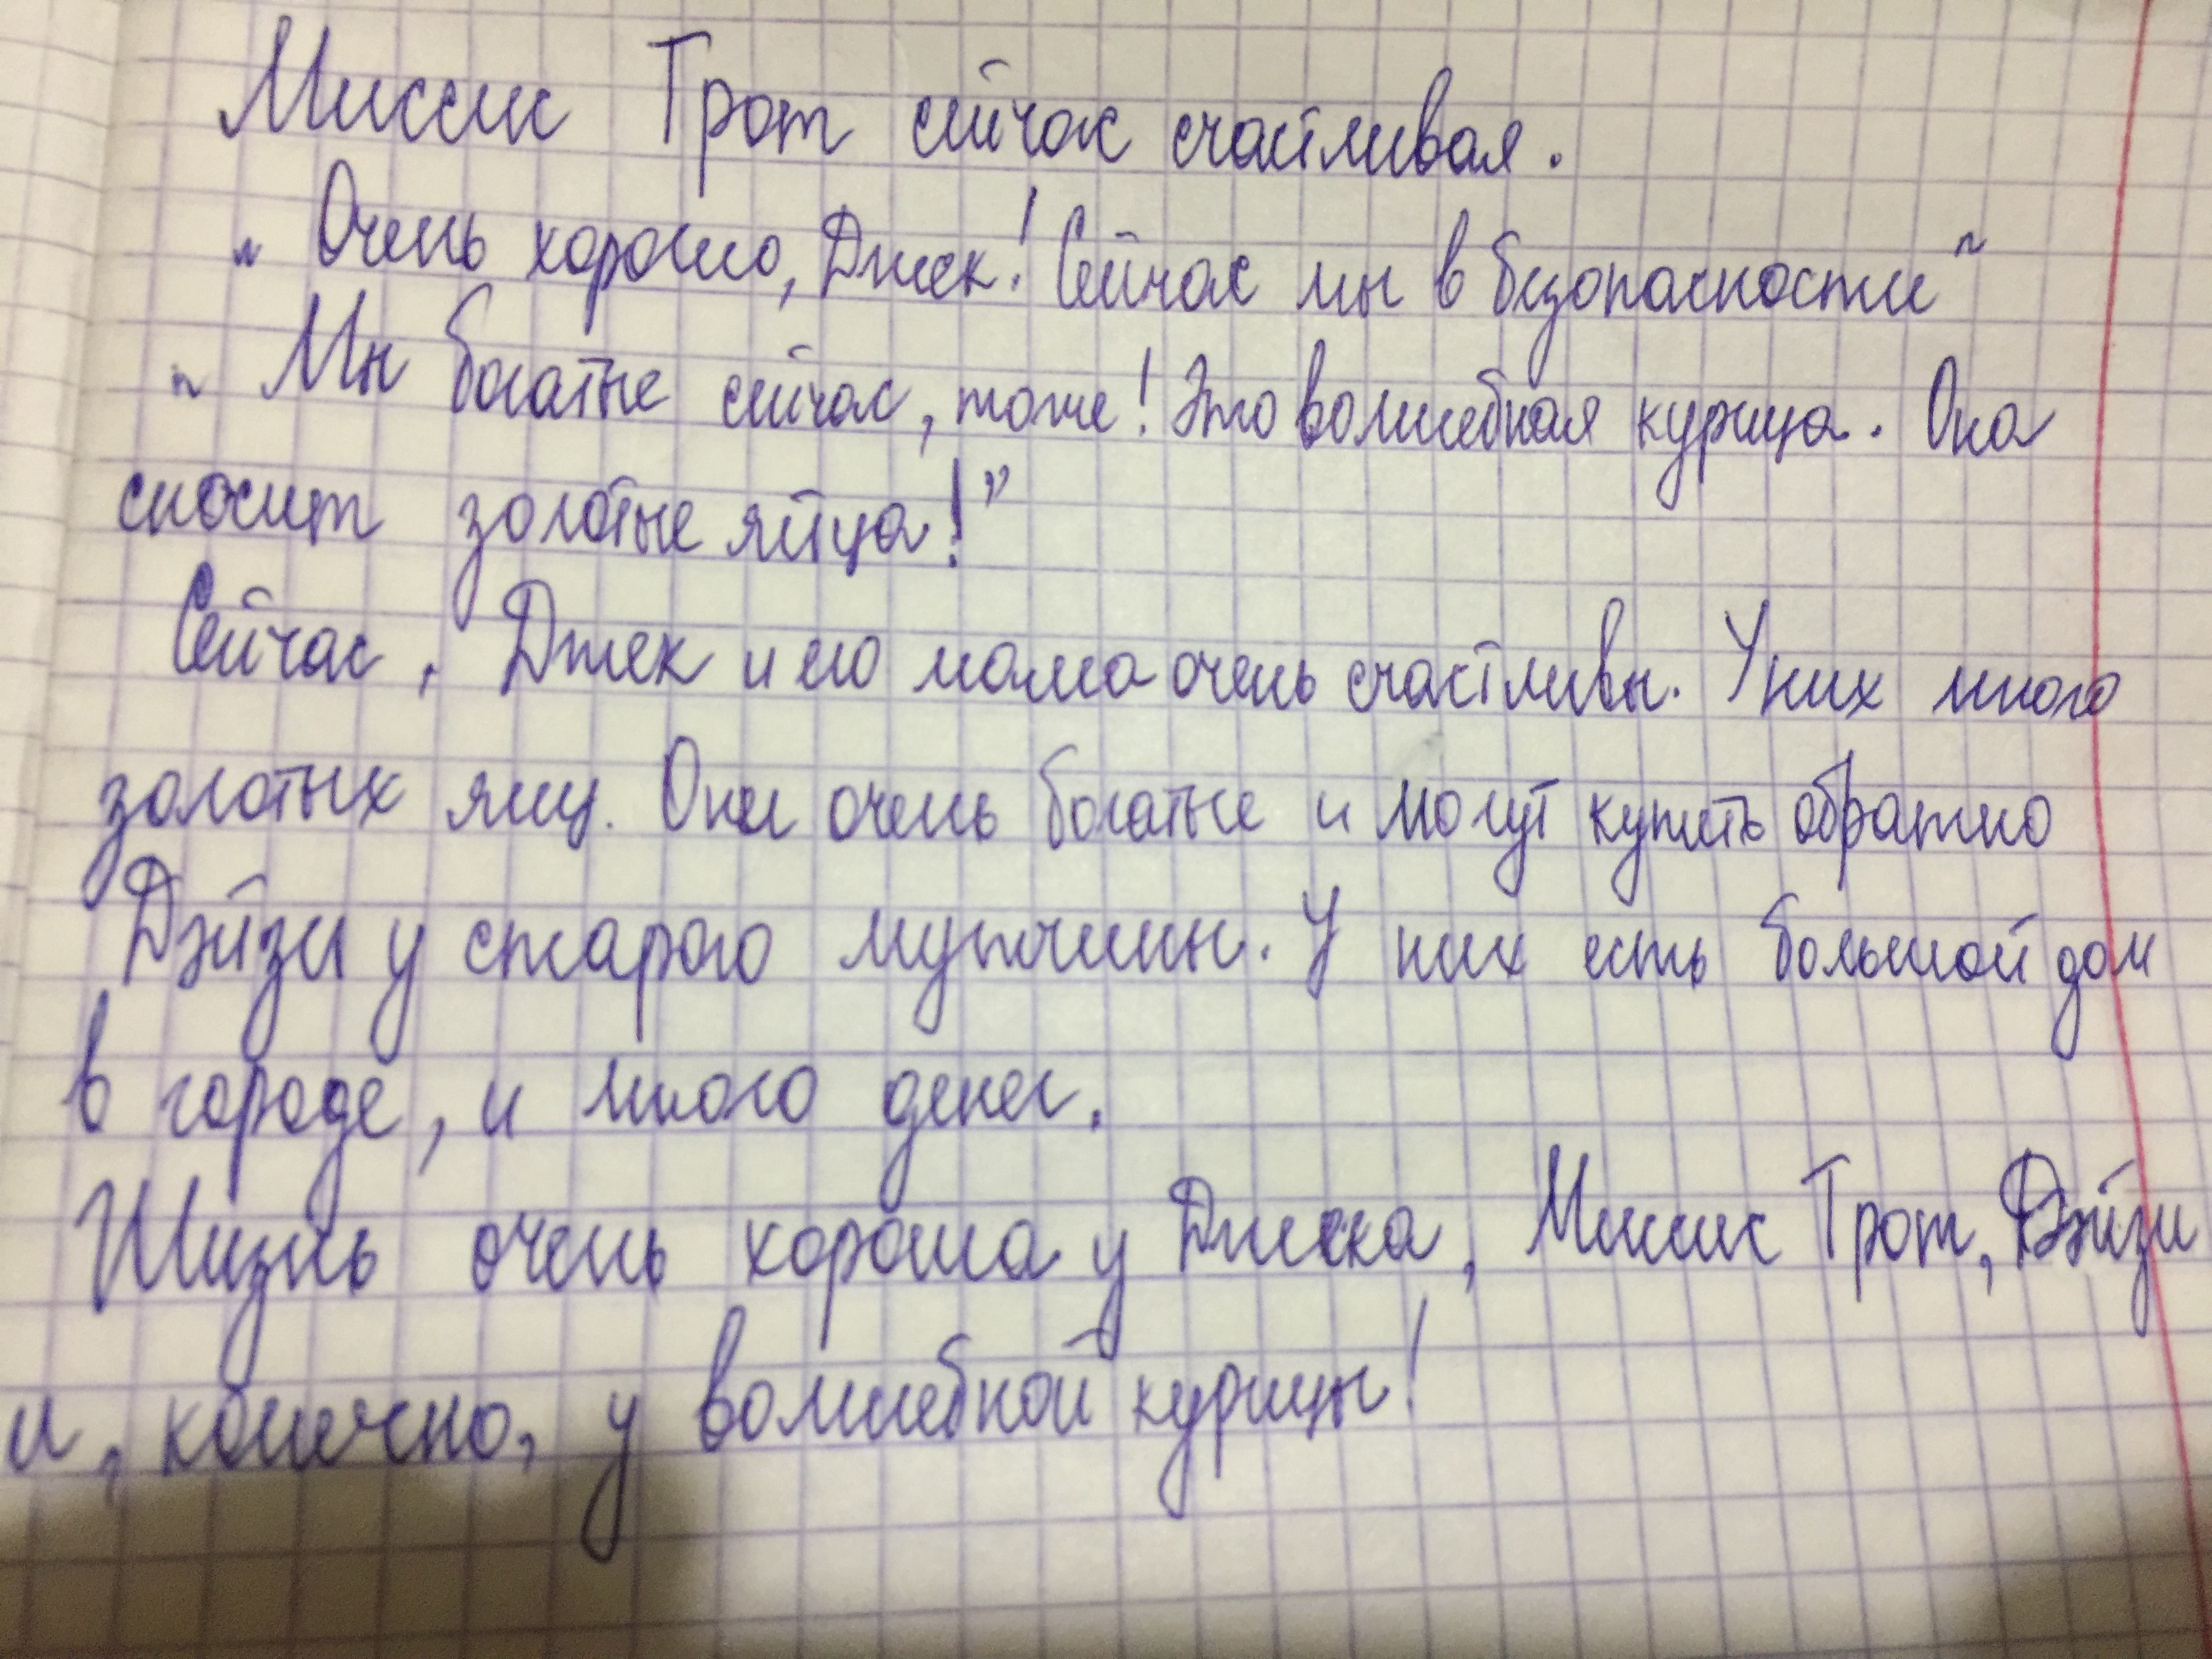 Миссис Трот сейчас счастливая.
„ Очень хорошо, Джек! Сейчас мы в безопасности"
" Мы богатые сейчас, тоже! Это волшебная курица. Она
сносит золотые яйца!”
Сейчас, Джек и его мама очень счастливы. У них много
золотых яиц. Они очень богатые и могут купить обратно
Дэйзи у старого мужчины. У них есть большой дом
в городе, и много денег.
Жизнь очень хороша у Джека, Миссис Трот, Дэйзи
и, конечно, у волшебной курицы!